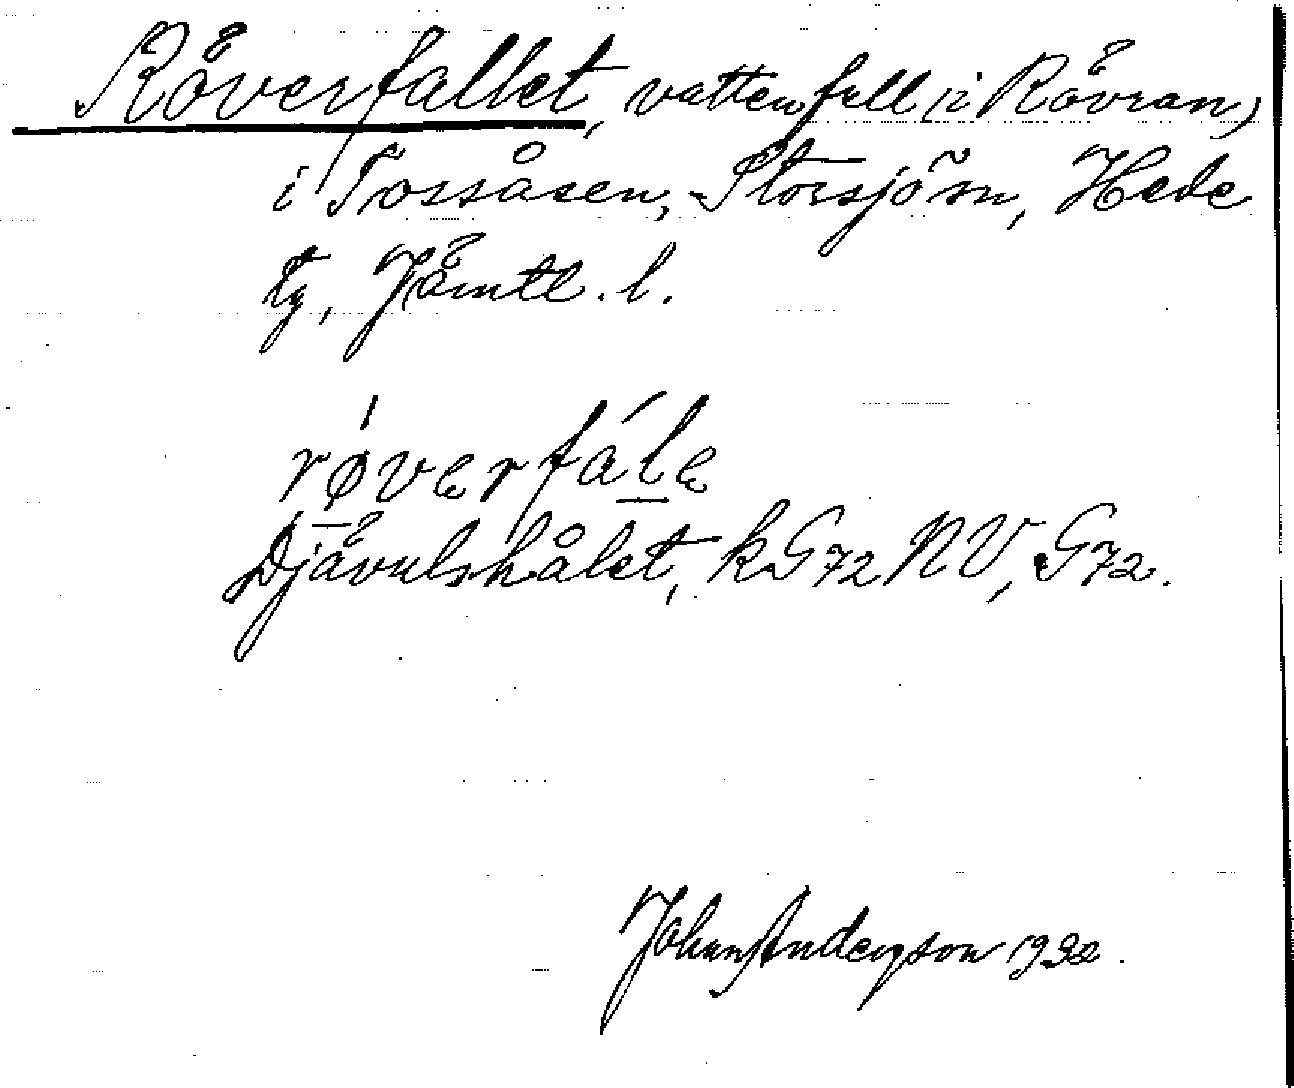 Röverfallet, vattenfall (i Rövran)
i Tossåsen, Storsjö sn, Hede
tg, Jämtl. l.
røverfále
Djävulshålet, kG72NV, G72.
John Anderson 1932.